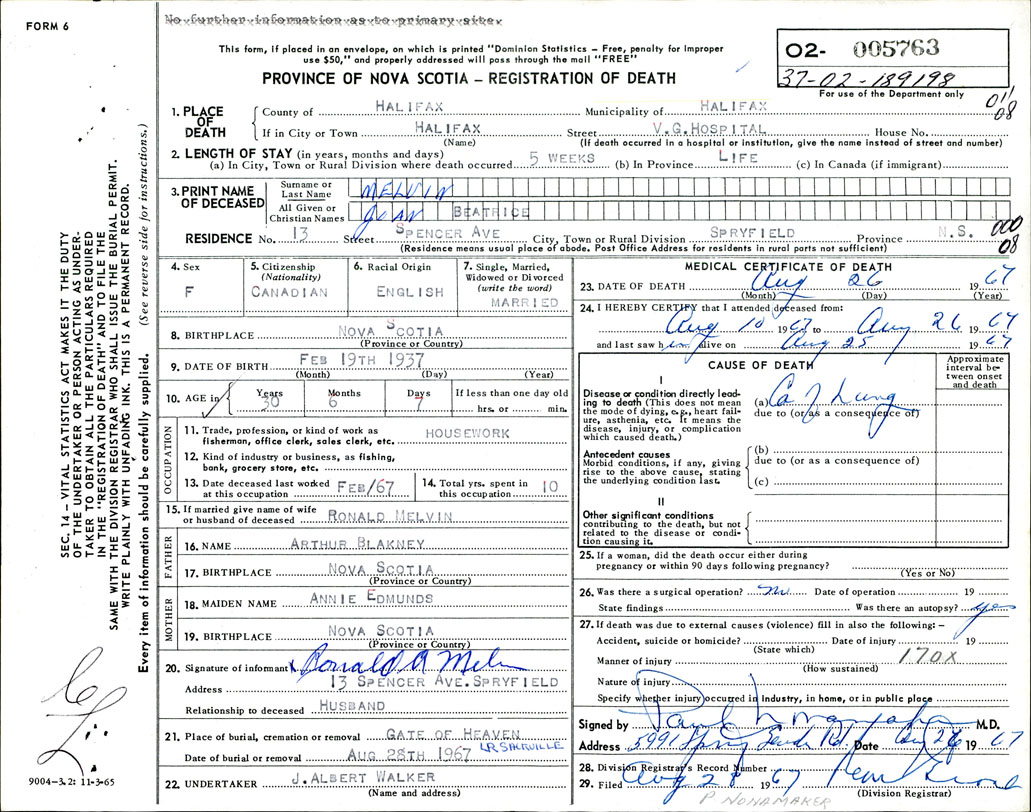 FORM 6
No further information as to primary site.
This form, if placed in an envelope, on which is printed "Dominion Statistics – Free, penalty for improper
use $50," and properly addressed will pass through the mail "FREE"
PROVINCE OF NOVA SCOTIA – REGISTRATION OF DEATH
02- 005763
37-02-189198
For use of the Department only
011
08
1. PLACE OF DEATH
County of HALIFAX Municipality of HALIFAX
If in City or Town HALIFAX Street V.G.HOSPITAL House No.
(Name) (If death occurred in a hospital or institution, give the name instead of street and number)
2. LENGTH OF STAY (in years, months and days)
(a) In City, Town or Rural Division where death occurred 5 WEEKS (b) In Province LIFE (c) In Canada (if immigrant)
3. PRINT NAME OF DECEASED
Surname or Last Name MELVIN
All Given or Christian Names JOAN BEATRICE
RESIDENCE No. 13 Street SPENCER AVE City, Town or Rural Division SPRYFIELD Province N.S.
(Residence means usual place of abode. Post Office Address for residents in rural parts not sufficient)
000
08
4. Sex F
5. Citizenship (Nationality) CANADIAN
6. Racial Origin ENGLISH
7. Single, Married, Widowed or Divorced (write the word) MARRIED
8. BIRTHPLACE NOVA SCOTIA
(Province or Country)
9. DATE OF BIRTH FEB 19TH 1937
(Month) (Day) (Year)
10. AGE in Years 30 Months 6 Days 7 If less than one day old hrs. or min.
OCCUPATION
11. Trade, profession, or kind of work as HOUSEWORK
fisherman, office clerk, sales clerk, etc.
12. Kind of industry or business, as fishing,
bank, grocery store, etc.
13. Date deceased last worked at this occupation FEB/67
14. Total yrs. spent in this occupation 10
15. If married give name of wife
or husband of deceased RONALD MELVIN
FATHER
16. NAME ARTHUR BLAKNEY
17. BIRTHPLACE NOVA SCOTIA
(Province or Country)
MOTHER
18. MAIDEN NAME ANNIE EDMUNDS
19. BIRTHPLACE NOVA SCOTIA
(Province or Country)
20. Signature of informant x Ronald A Melvin
Address 13 SPENCER AVE.SPRYFIELD
Relationship to deceased HUSBAND
21. Place of burial, cremation or removal GATE OF HEAVEN
LR. SACKVILLE
Date of burial or removal AUG 28TH 1967
22. UNDERTAKER J.ALBERT WALKER
(Name and address)
MEDICAL CERTIFICATE OF DEATH
23. DATE OF DEATH Aug 26 1967
(Month) (Day) (Year)
24. I HEREBY CERTIFY that I attended deceased from:
Aug 10 1967 to Aug 26 1967
and last saw him alive on Aug 25 1967
CAUSE OF DEATH
Approximate interval between onset and death
I
Disease or condition directly leading to death (This does not mean the mode of dying, e.g., heart failure, asthenia, etc. It means the disease, injury, or complication which caused death.)
(a) Ca of Lung
due to (or as a consequence of)
Antecedent causes
Morbid conditions, if any, giving rise to the above cause, stating the underlying condition last.
(b)
due to (or as a consequence of)
(c)
II
Other significant conditions
contributing to the death, but not related to the disease or condition causing it.
25. If a woman, did the death occur either during
pregnancy or within 90 days following pregnancy?
(Yes or No)
26. Was there a surgical operation? no Date of operation 19
State findings Was there an autopsy? yes
27. If death was due to external causes (violence) fill in also the following: –
Accident, suicide or homicide? Date of injury 19
(State which)
Manner of injury 170X
(How sustained)
Nature of injury
Specify whether injury occurred in industry, in home, or in public place
Signed by M.D.
Address 5991 Spring Garden Rd. Date Aug 26 1967
28. Division Registrar's Record Number
29. Filed Aug 28 1967
(Division Registrar)
P NONAMAKER
SEC. 14 – VITAL STATISTICS ACT MAKES IT THE DUTY
OF THE UNDERTAKER OR PERSON ACTING AS UNDER-
TAKER TO OBTAIN ALL THE PARTICULARS REQUIRED
IN THE "REGISTRATION OF DEATH" AND TO FILE THE
SAME WITH THE DIVISION REGISTRAR WHO SHALL ISSUE THE BURIAL PERMIT.
WRITE PLAINLY WITH UNFADING INK. THIS IS A PERMANENT RECORD.
Every item of information should be carefully supplied. (See reverse side for instructions.)
9004-3.2: 11-3-65